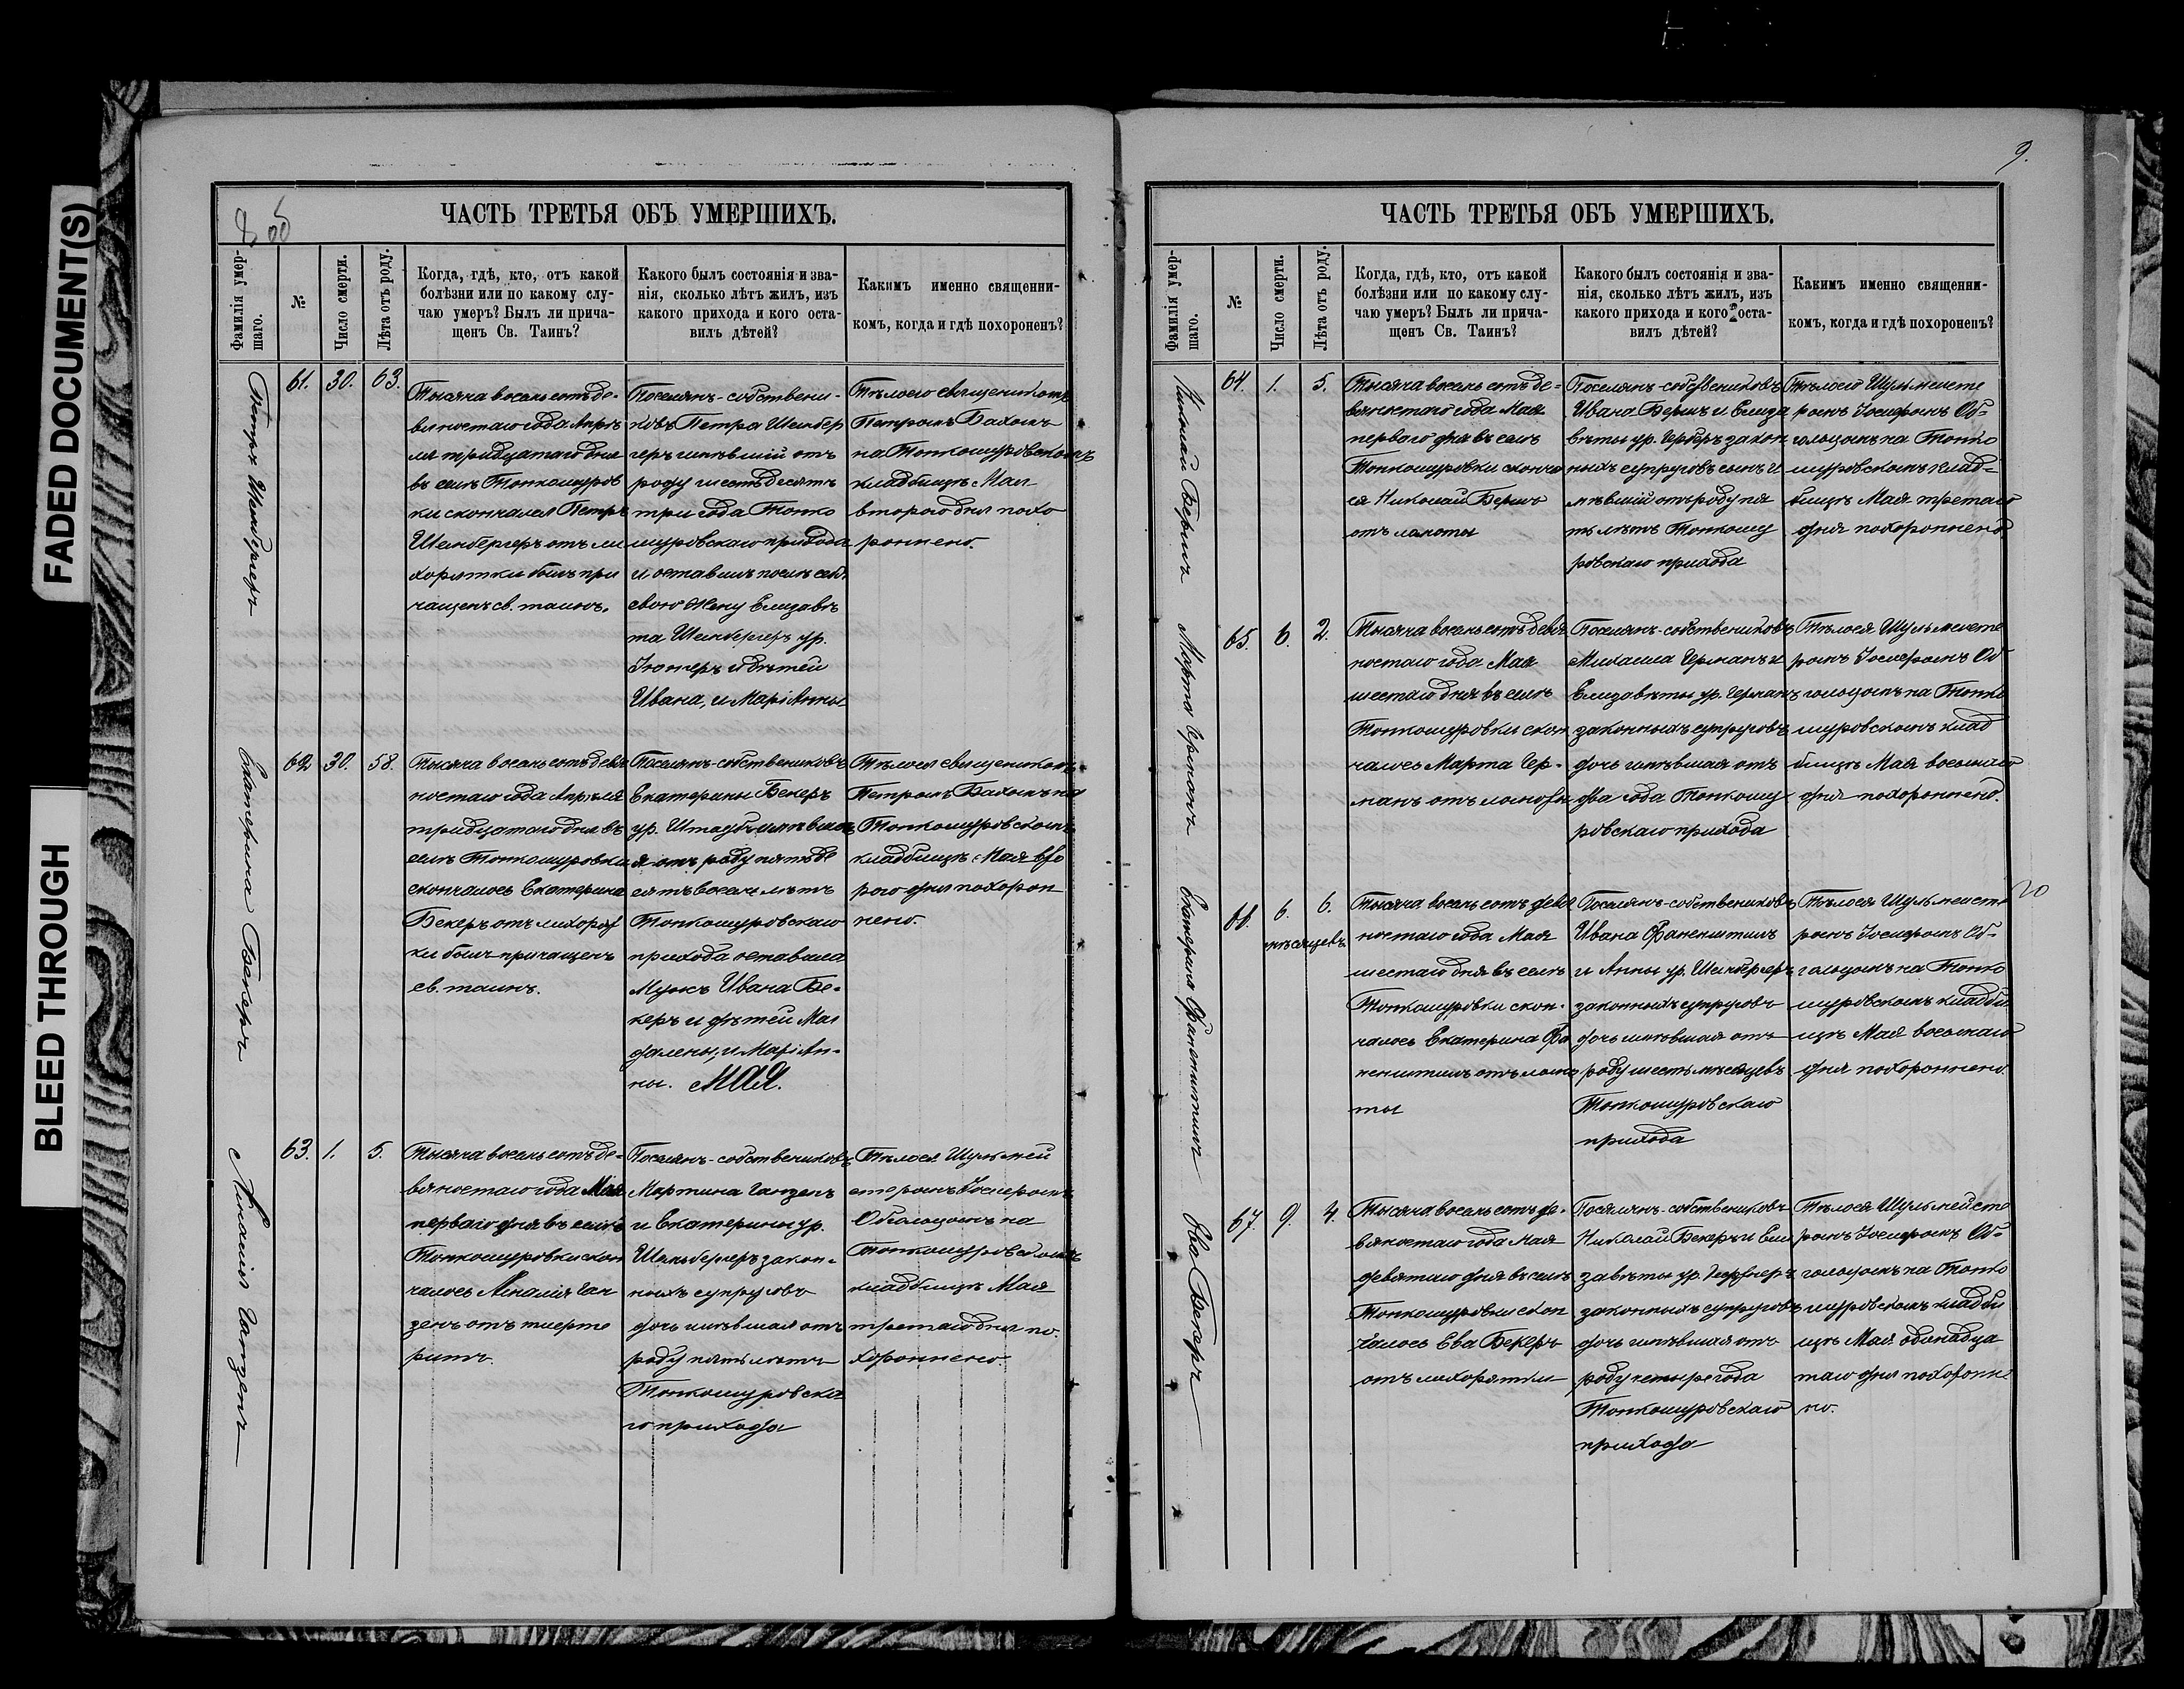 FADED DOCUMENT(S)
BLEED THROUGH
ЧАСТЬ ТРЕТЬЯ ОБЪ УМЕРШИХЪ.
Фамилія умер-
шаго.
№
Число смерти.
Лѣта отъ роду.
Когда, гдѣ, кто, отъ какой
болѣзни или по какому слу-
чаю умеръ? Былъ ли прича-
щенъ Св. Таинъ?
Какого былъ состоянія и зва-
нія, сколько лѣтъ жилъ, изъ
какого прихода и кого оста-
вилъ дѣтей?
Какимъ именно священни-
комъ, когда и гдѣ похороненъ?
Петръ Шенбергеръ
61.
30.
63.
Тысяча восемь сотъ де-
вяностаго года Апрѣ
ля тридцатаго дня
въ селѣ Тонкошуров
ки скончался Петръ
Шенбергеръ отъ ли
хорятки былъ при
чащенъ св. таинъ.
Поселянъ-собствени-
ковъ Петра Шенбер
геръ имѣвшій отъ
роду шестьдесятъ
три года Тонко
шуровскаго прихода
и оставилъ послѣ себя
свою жену Елизавѣ
та Шенбергеръ ур.
и дѣтей
Ивана, и Маріанны
Тѣло его священикомъ
Петромъ Бахомъ
на Тонкошуровскомъ
кладбищѣ Мая
второго дня похо
роннено.
Екатерина Бекеръ
62
30.
58.
Тысяча восемь сотъ девя
ностаго года Апрѣля
тридцатаго дня въ
селѣ Тонкошуровки
скончалось Екатерина
Бекеръ отъ лихорад
ки былъ причащенъ
св. таинъ.
Поселянъ-собствениковъ
Екатерины Бекеръ
ур. Штаубъ имѣвша
я отъ роду пятьде
сятъ восемь лѣтъ
Тонкошуровскаго
прихода оставила
Мужъ Ивана Бе-
керъ и дѣтей Маг
далены, и Маріан-
ны.
Тѣло ея священикомъ
Петромъ Бахомъ на
Тонкошуровскомъ
кладбищѣ Мая вто
рого дня похорон
нено.
МАЯ.
Амалія Ганзенъ
63.
1.
5.
Тысяча восемь сотъ де-
вяностаго года Мая
перваго дня въ селѣ
Тонкошуровки скон
чалось Амалія Ган
зенъ отъ
Поселянъ-собствениковъ
Мартина Ганзенъ
и Екатерины ур.
Шенбергеръ закон-
ныхъ супруговъ
дочь имѣвшая отъ
роду пять лѣтъ
Тонкошуровска
го прихода
Тѣло ея Шульмей
стеромъ Іосифомъ
Обгольцомъ на
Тонкошуровскомъ
кладбищѣ Мая
третаго дня по-
хороннено.
9.
ЧАСТЬ ТРЕТЬЯ ОБЪ УМЕРШИХЪ.
Фамилія умер-
шаго.
№
Число смерти.
Лѣта отъ роду.
Когда, гдѣ, кто, отъ какой
болѣзни или по какому слу-
чаю умеръ? Былъ ли прича-
щенъ Св. Таинъ?
Какого былъ состоянія и зва-
нія, сколько лѣтъ жилъ, изъ
какого прихода и кого оста-
вилъ дѣтей?
Какимъ именно священни-
комъ, когда и гдѣ похороненъ?
Николай Бершъ
64.
1.
5.
Тысяча восемь сотъ де-
вяностаго года Мая
перваго дня въ селѣ
Тонкошуровки скончал
ся Николай Бершъ
отъ ломоты
Поселянъ-собствениковъ
Ивана Бершъ и Елиза
вѣты ур. Герберъ закон
ныхъ супруговъ сынъ и
мѣвшій отъ роду пя
ть лѣтъ Тонкошу
ровскаго прихода
Тѣло его Шульмейсте
ромъ Іосифомъ Об-
гольцомъ на Тонко
шуровскомъ клад-
бищѣ Мая третаго
дня похороннено
Марта Германъ
65.
6.
2.
Тысяча восемь сотъ девя
ностаго года Мая
шестаго дня въ селѣ
Тонкошуровки скон
чалось Марта Гер-
манъ отъ ломоты
Поселянъ-собствениковъ
Михаила Германъ и
Елизавѣты ур. Германъ
законныхъ супруговъ
дочь имѣвшая отъ
два года Тонкошу
ровскаго прихода
Тѣло ея Шульмейсте
ромъ Іосифомъ Об
гольцомъ на Тонко
шуровскомъ клад
бищѣ Мая восьмаго
дня похороннено.
Екатерина Фаненштиль
66.
6.
6.
мѣсяцевъ
Тысяча восемь сотъ девя
ностаго года Мая
шестаго дня въ селѣ
Тонкошуровки скон-
чалось Екатерина Фа
ненштиль отъ ломо
ты
Поселянъ-собствениковъ
Ивана Фаненштиль
и Анны ур. Шенбергеръ
законныхъ супруговъ
дочь имѣвшая отъ
роду шесть мѣсяцевъ
Тонкошуровскаго
прихода
Тѣло ея Шульмейсте
ромъ Іосифомъ Об-
гольцомъ на Тонко
шуровскомъ кладби
щѣ Мая восьмаго
дня похороннено.
20
Ева Бекеръ
67.
9.
4.
Тысяча восемь сотъ де-
вяностаго года Мая
девятаго дня въ селѣ
Тонкошуровки скон
чалось Ева Бекеръ
отъ лихорятки
Поселянъ-собствениковъ
Николай Бекеръ и Ели
завѣты ур.
законныхъ супруговъ
дочь имѣвшая отъ
роду четыре года
Тонкошуровскаго
прихода
Тѣло ея Шульмейсте
ромъ Іосифомъ Об-
гольцомъ на Тонко
шуровскомъ кладби
щѣ Мая одинадца
таго дня похоронне
но.